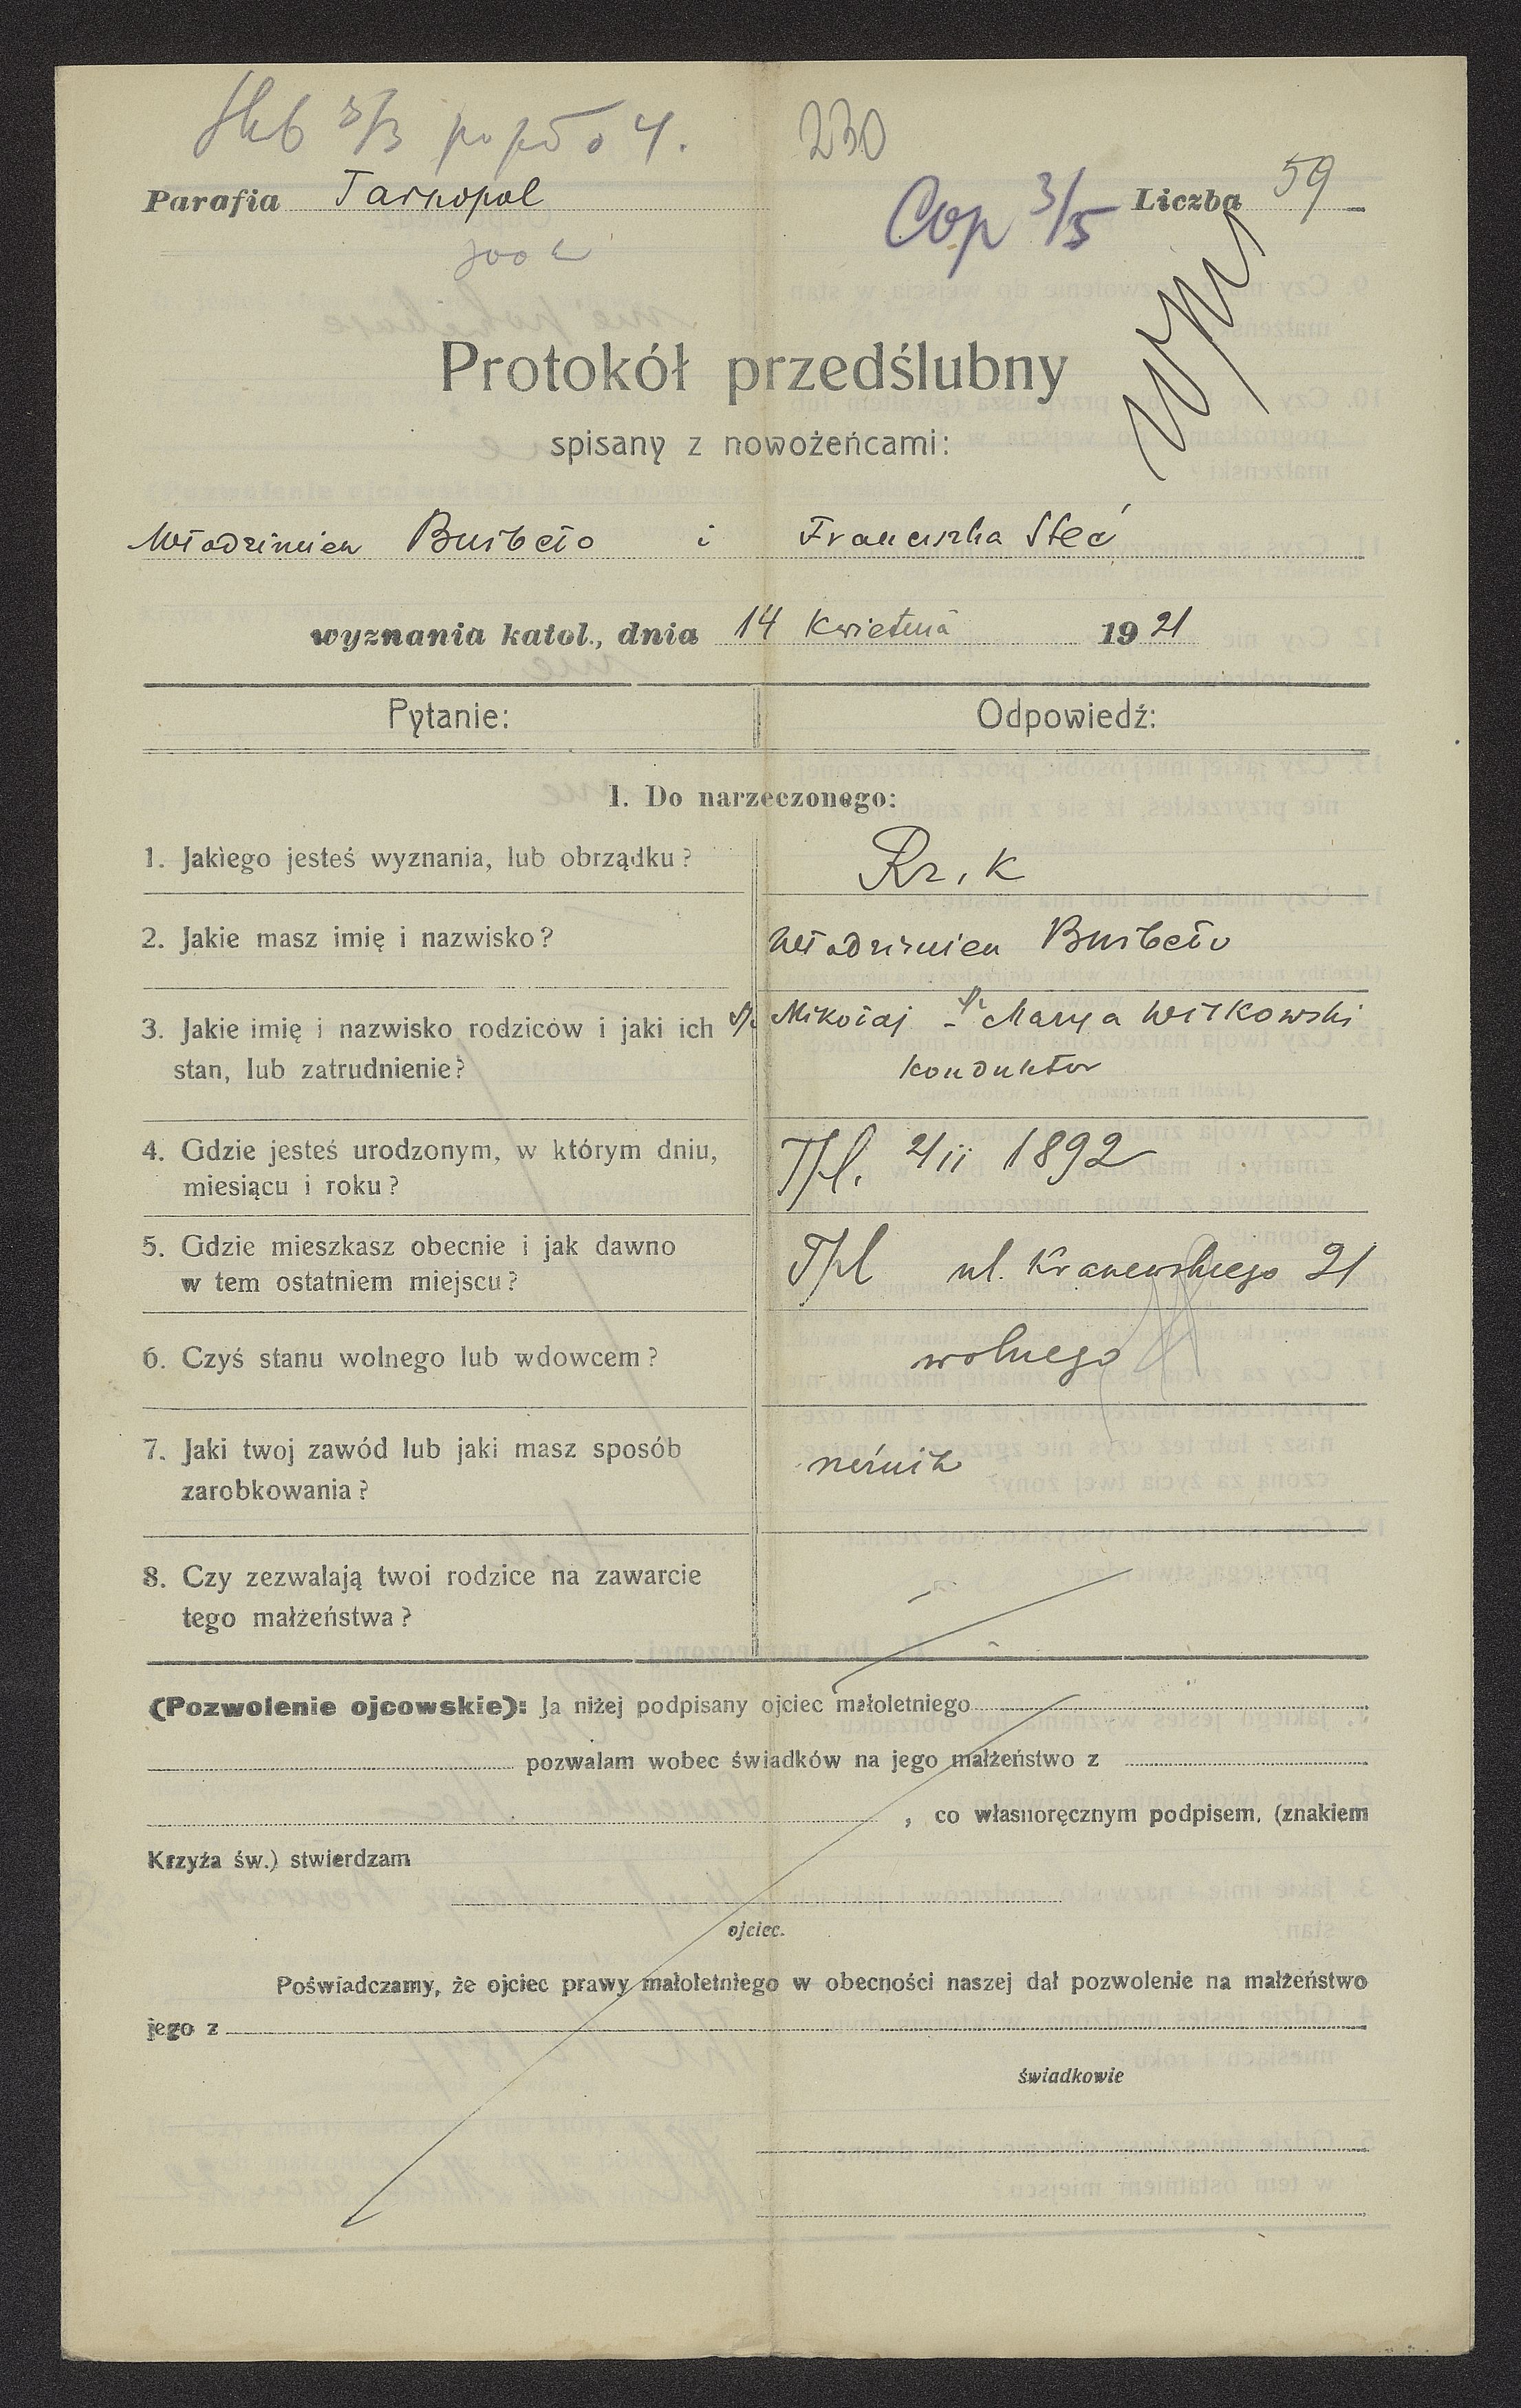 230
Parafia Tarnopol
Cop 3/5
Liczba 59
Protokół przedślubny
spisany z nowożeńcami:
Włodzimierz i Franciszka Steć
wyznania katol., dnia 14 Kwietnia 1921
Pytanie: Odpowiedź:
I. Do narzeczonego:
1. Jakiego jesteś wyznania, lub obrządku? Rz. K
2. Jakie masz imię i nazwisko? Włodzimierz
3. Jakie imię i nazwisko rodziców i jaki ich Mikołaj - Marya Witkowski
stan, lub zatrudnienie? konduktor
4. Gdzie jesteś urodzonym, w którym dniu, Tpl. 1892
miesiącu i roku?
5. Gdzie mieszkasz obecnie i jak dawno Tpl ul. 21
w tem ostatniem miejscu?
6. Czyś stanu wolnego lub wdowcem? wolnego
7. Jaki twoj zawód lub jaki masz sposób
zarobkowania?
8. Czy zezwalają twoi rodzice na zawarcie
tego małżeństwa?
(Pozwolenie ojcowskie): Ja niżej podpisany ojciec małoletniego
pozwalam wobec świadków na jego małżeństwo z
, co własnoręcznym podpisem, (znakiem
Krzyża św.) stwierdzam
ojciec.
Poświadczamy, że ojciec prawy małoletniego w obecności naszej dał pozwolenie na małżeństwo
jego z
świadkowie